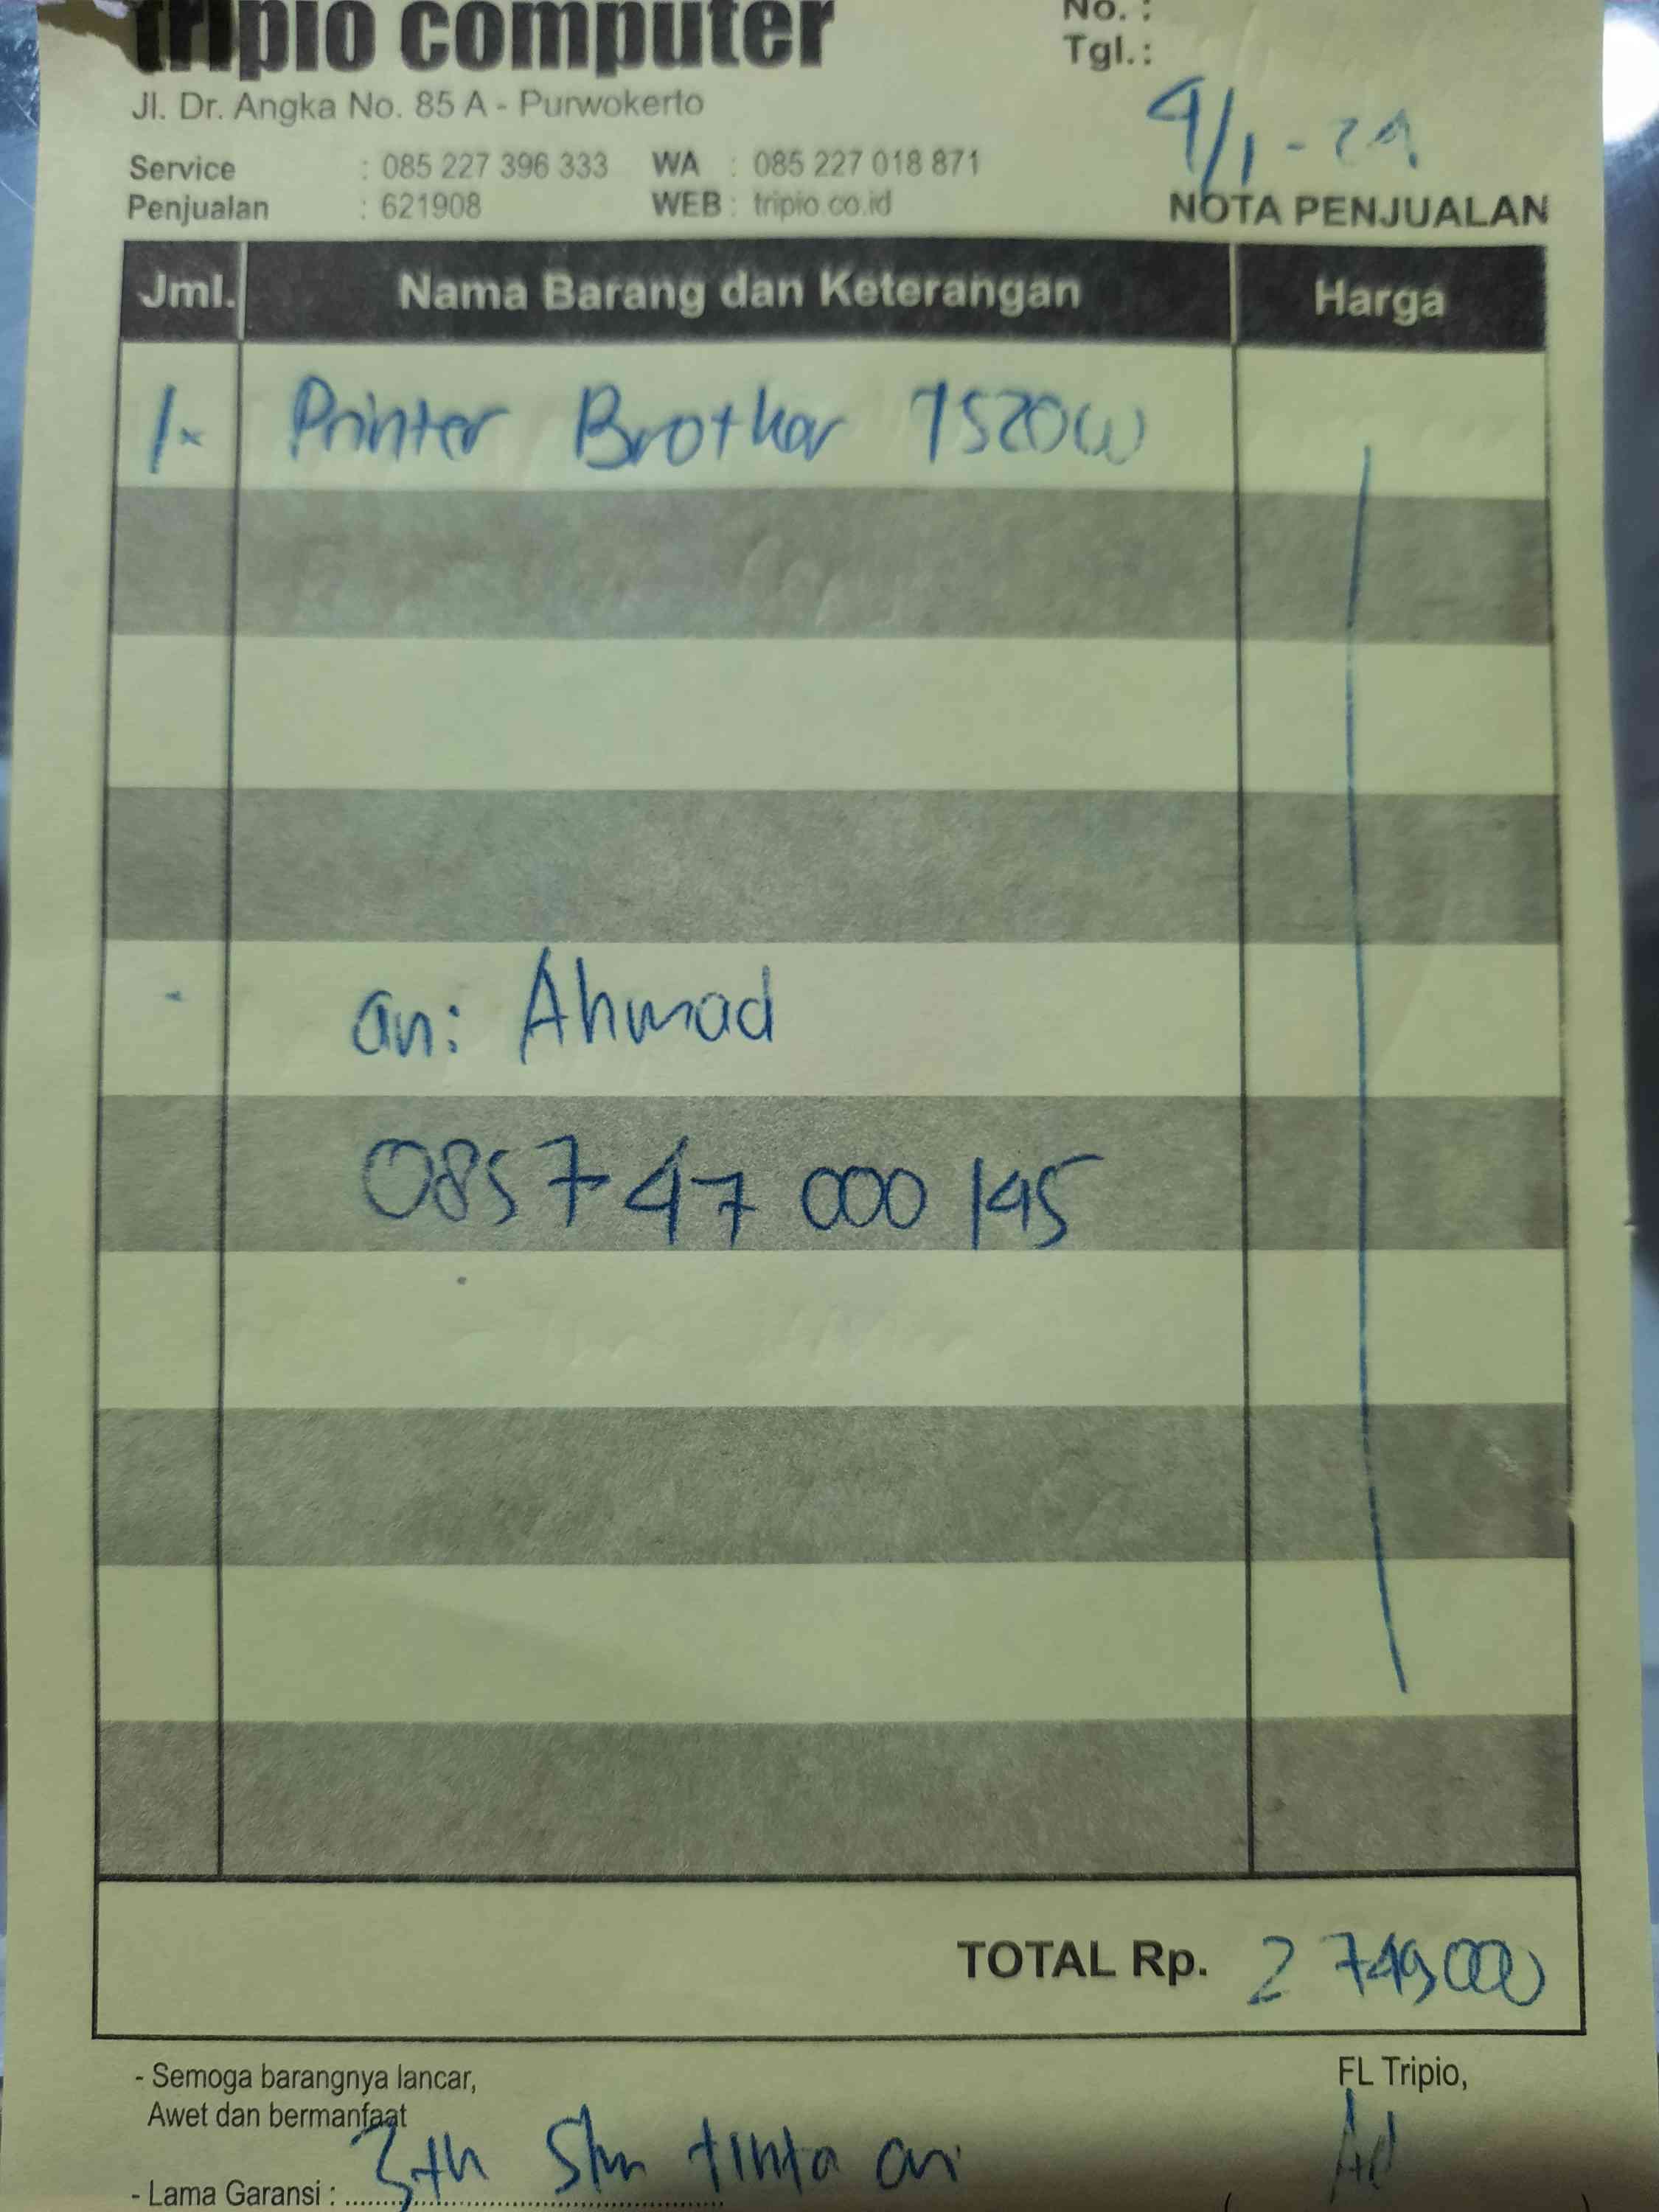 tripio computer
No. :
Tgl. :
4/1 - 24
Jl. Dr. Angka No. 85 A - Purwokerto
Service : 085 227 396 333 WA : 085 227 018 871
Penjualan : 621908 WEB : tripio.co.id
NOTA PENJUALAN
Jml. Nama Barang dan Keterangan Harga
1 Printer Brother T520W
an: Ahmad
0857 47 000 145
TOTAL Rp. 2 749000
- Semoga barangnya lancar,
Awet dan bermanfaat
FL Tripio,
- Lama Garansi : 3th tinta ori